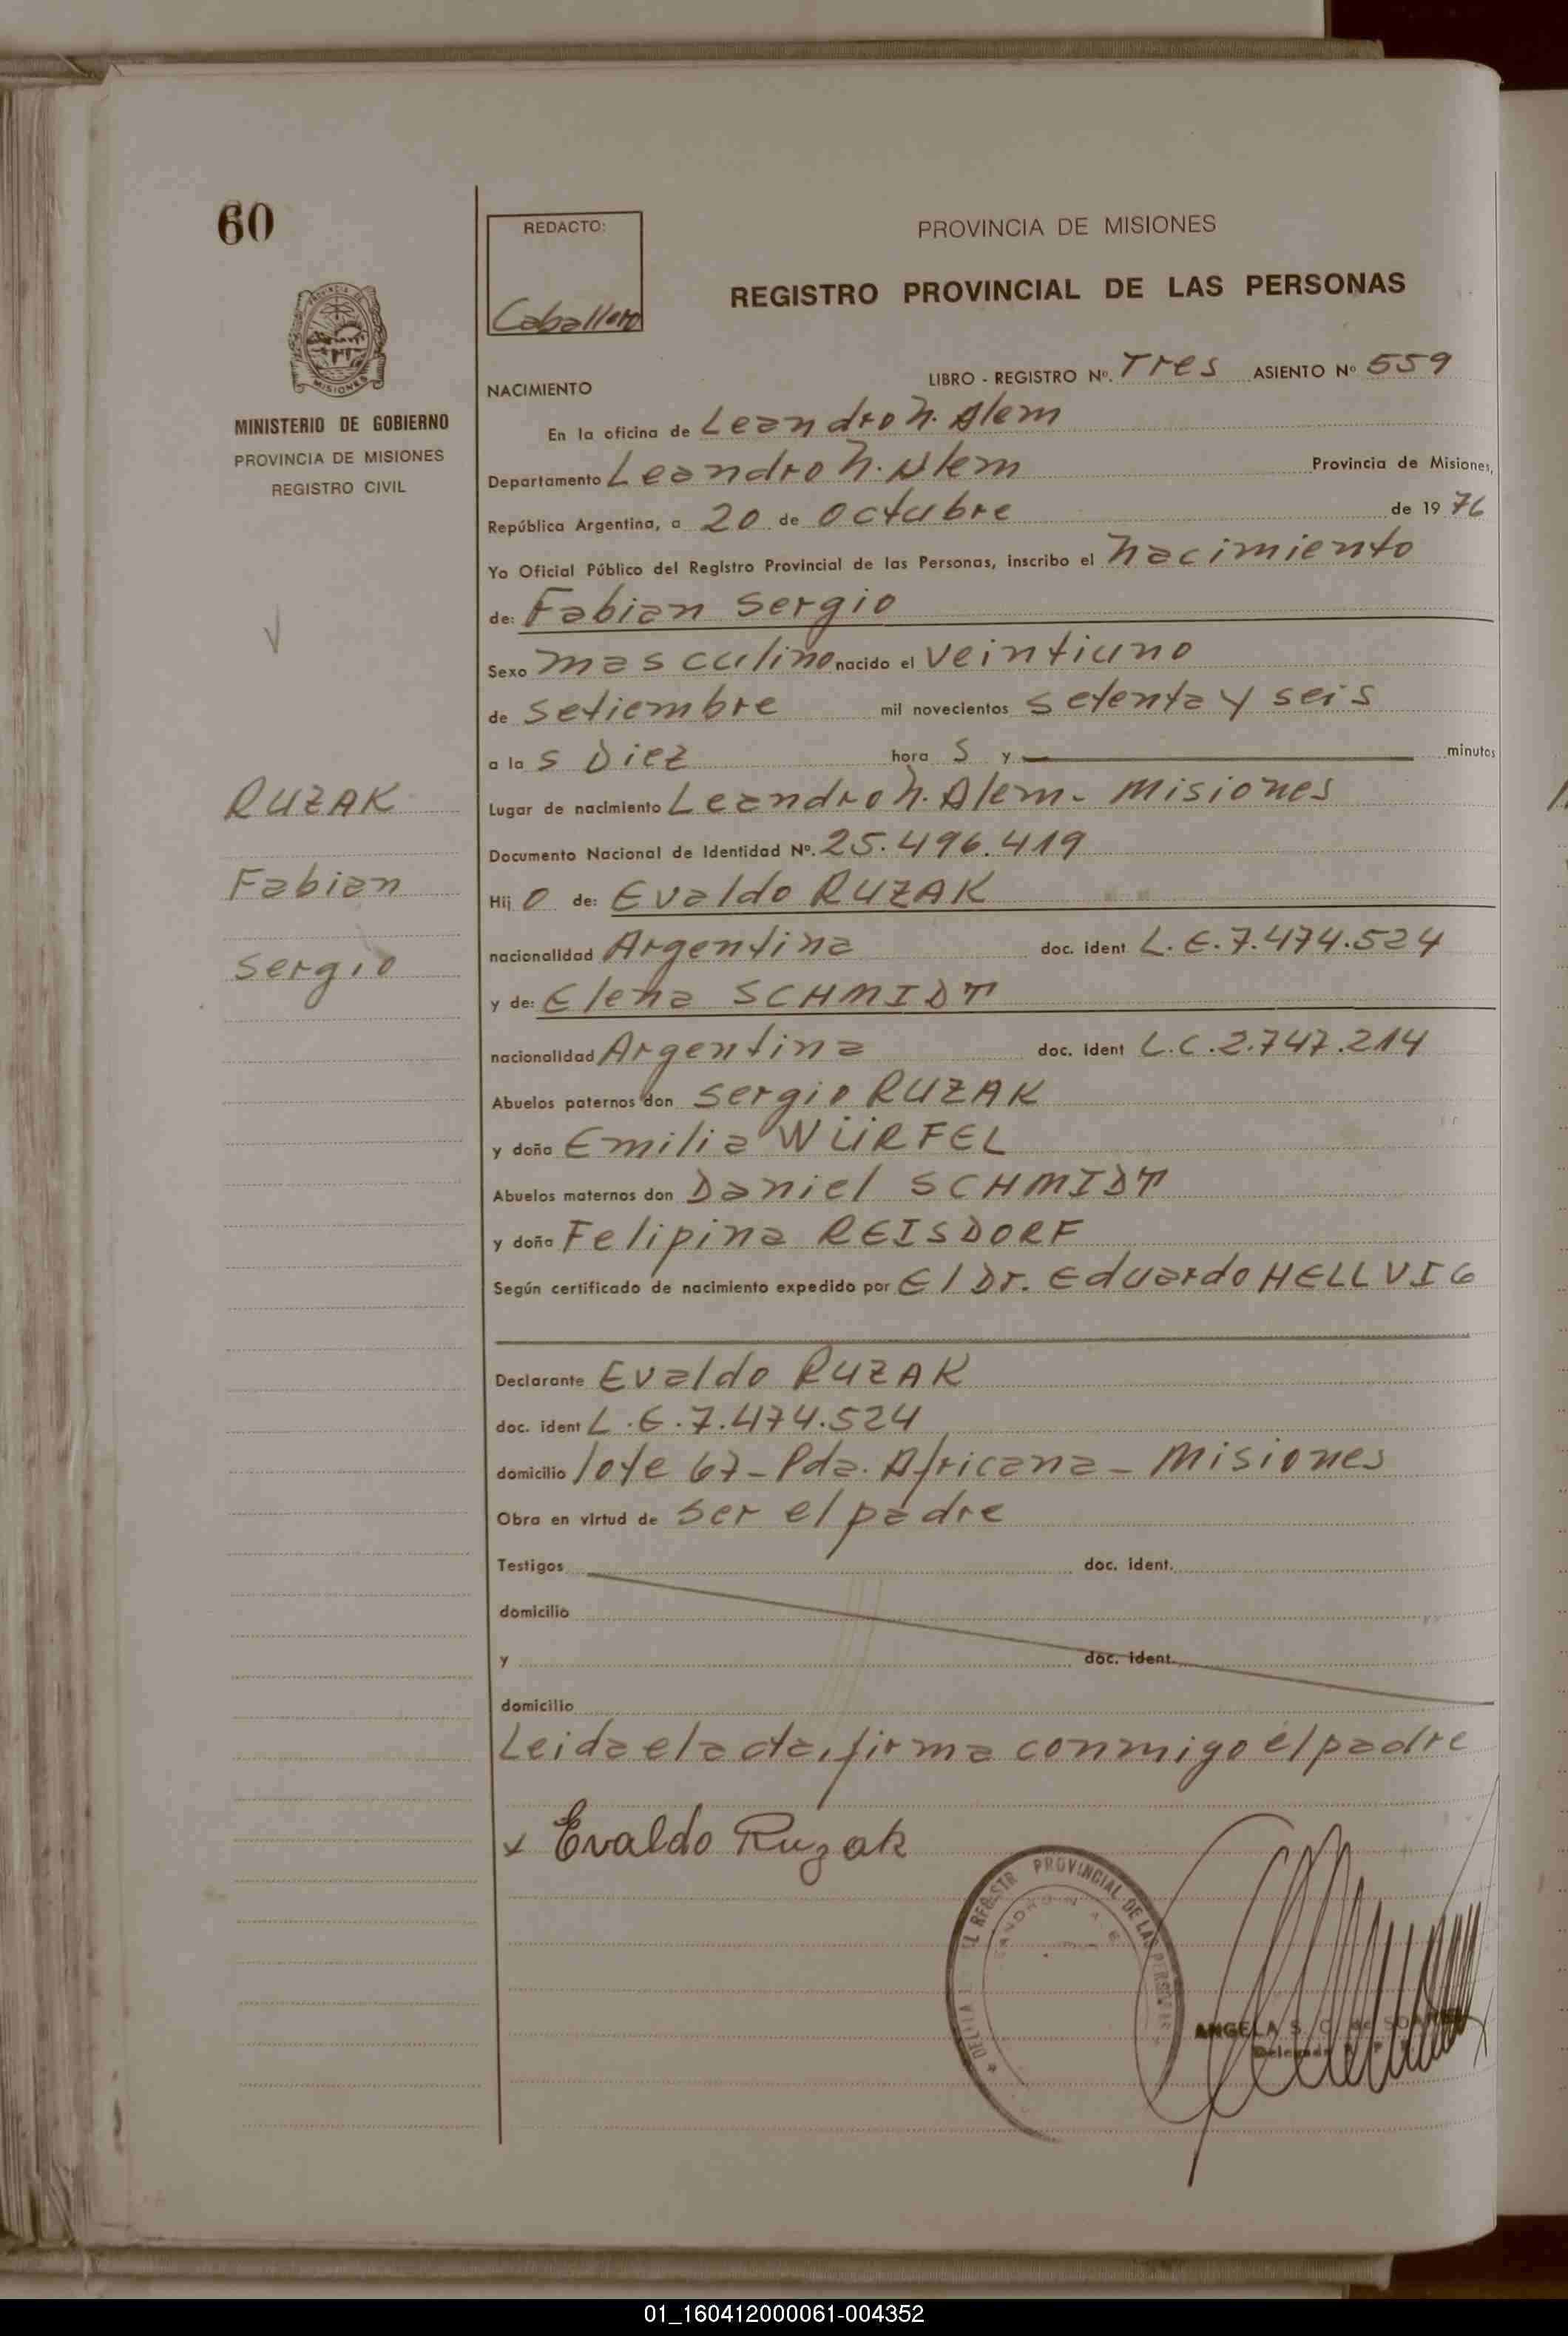 60
REDACTO:
Caballero
PROVINCIA DE MISIONES
REGISTRO PROVINCIAL DE LAS PERSONAS
PROVINCIA DE
MISIONES
MINISTERIO DE GOBIERNO
PROVINCIA DE MISIONES
REGISTRO CIVIL
NACIMIENTO
LIBRO - REGISTRO Nº. Tres ASIENTO Nº 559
En la oficina de Leandro N. Alem
Departamento Leandro N. Alem Provincia de Misiones,
República Argentina, a 20 de Octubre de 19 76
Yo Oficial Público del Registro Provincial de las Personas, inscribo el nacimiento
de: Fabian Sergio
Sexo masculino nacido el veintiuno
de Setiembre mil novecientos setenta y seis
a las Diez horas y minutos
RUZAK
Fabian
Sergio
Lugar de nacimiento Leandro N. Alem - Misiones
Documento Nacional de Identidad Nº. 25.496.419
Hijo de: Evaldo RUZAK
nacionalidad Argentina doc. ident L.E.7.474.524
y de: Elena SCHMIDT
nacionalidad Argentina doc. ident L.C.2.747.214
Abuelos paternos don Sergio RUZAK
y doña Emilia WÜRFEL
Abuelos maternos don Daniel SCHMIDT
y doña Felipina REISDORF
Según certificado de nacimiento expedido por El Dr. Eduardo HELLVIG
Declarante Evaldo RUZAK
doc. ident L.E.7.474.524
domicilio lote 67 - Pda. Africana - Misiones
Obra en virtud de ser el padre
Testigos doc. ident.
domicilio
y doc. ident.
domicilio
Leida el acta, firma conmigo el padre
x Evaldo Ruzak
PROVINCIAL DE LAS
ANGELA S. de
01_160412000061-004352